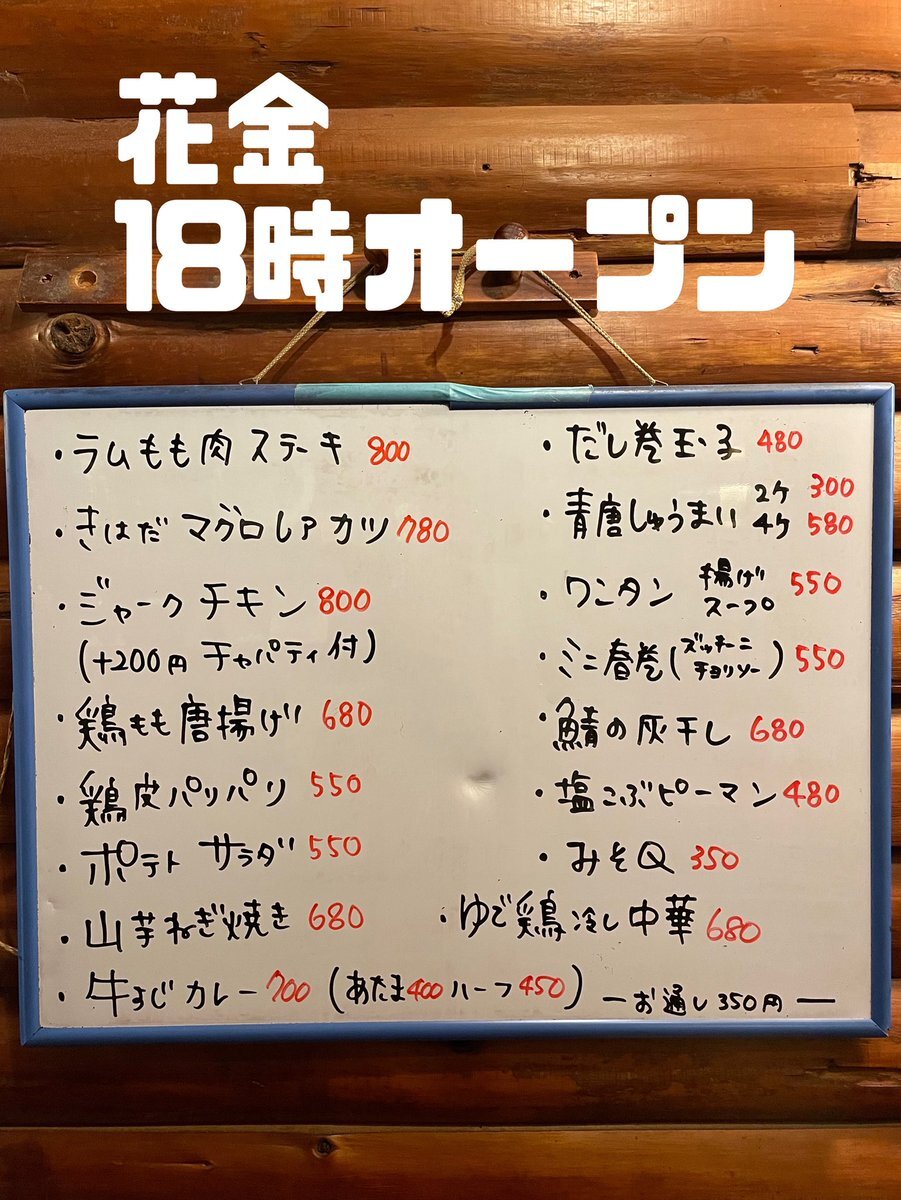 花金
18時オープン
・ラムもも肉ステーキ 800
・きはだマグロレアカツ 780
・ジャークチキン 800
(+200円 チャパティ付)
・鶏もも唐揚げ 680
・鶏皮パリパリ 550
・ポテトサラダ 550
・山芋ねぎ焼き 680
・牛すじカレー 700 (あたま400 ハーフ450)
・だし巻玉子 480
・青唐しゅうまい 2ケ 300
4ケ 580
・ワンタン 揚げ スープ 550
・ミニ春巻(ズッキーニ チョリソー) 550
・鯖の灰干し 680
・塩こぶピーマン 480
・みそQ 350
・ゆで鶏冷し中華 680
ーお通し350円ー